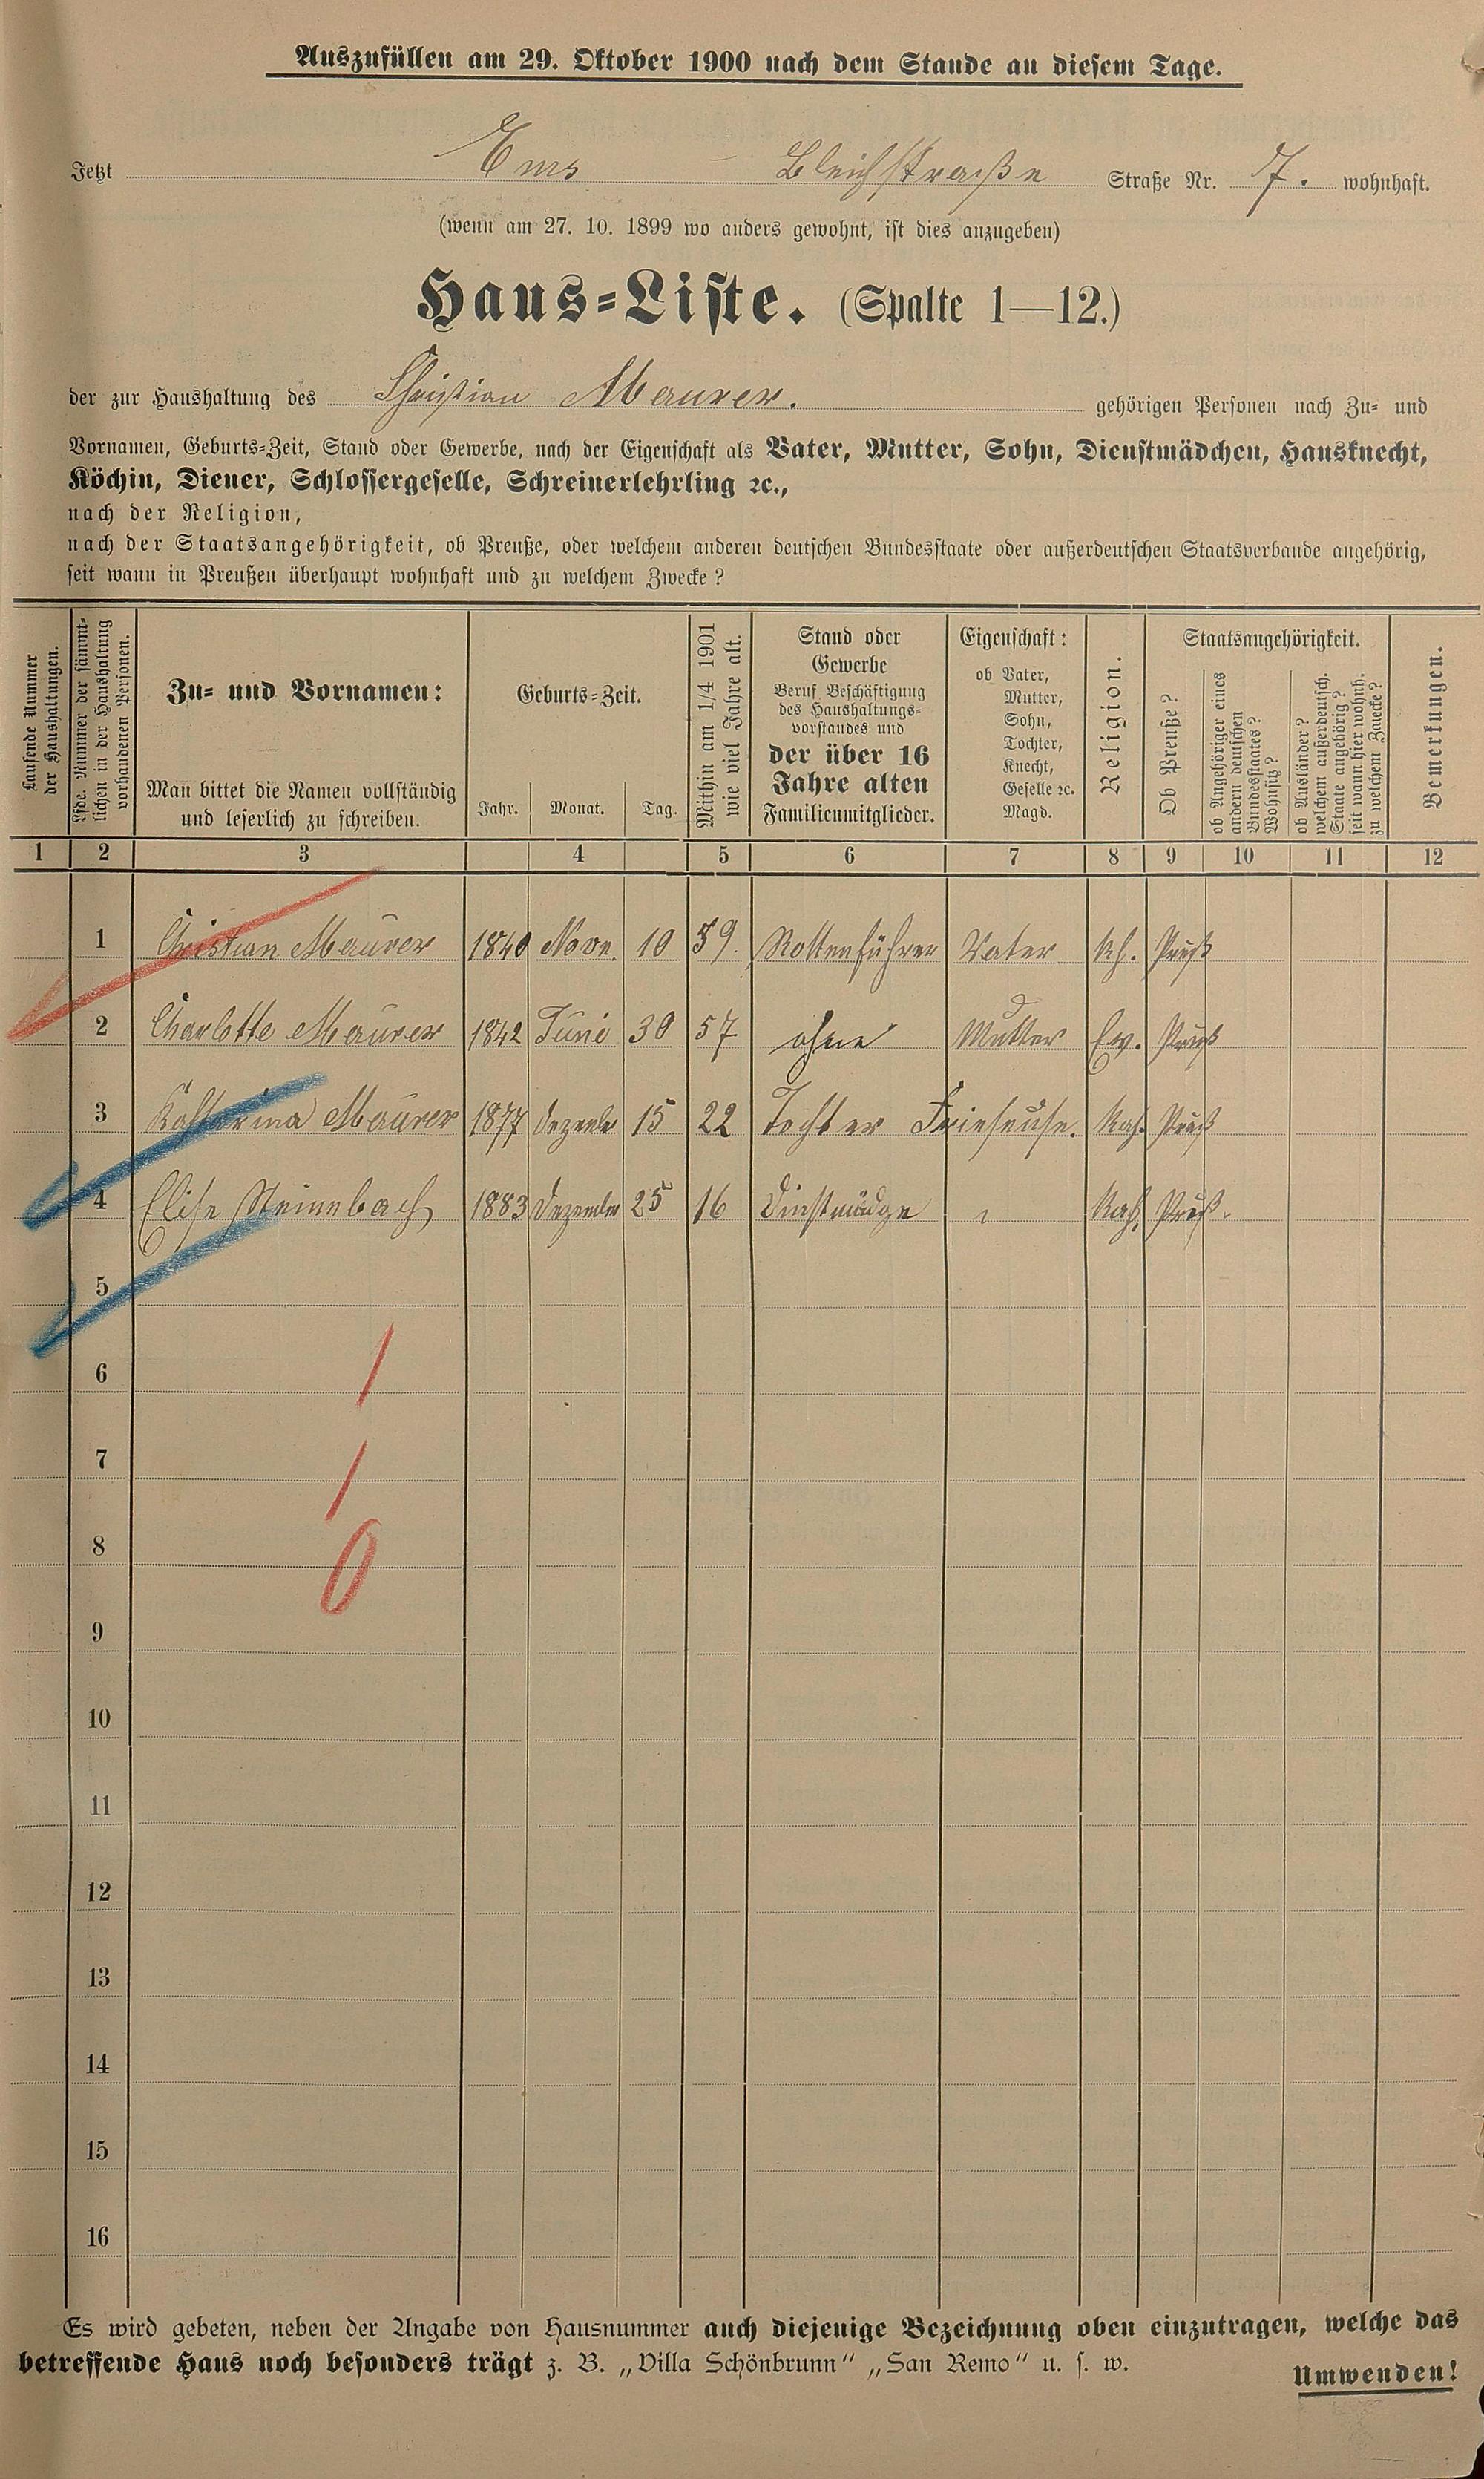 Auszufüllen am 29. Oktober 1900 nach dem Stande an diesem Tage.
Jetzt Ems Bleichstraße Straße Nr. 7. wohnhaft.
(wenn am 27. 10. 1899 wo anders gewohnt, ist dies anzugeben)
Haus-Liste. (Spalte 1—12.)
der zur Haushaltung des Christian Maurer. gehörigen Personen nach Zu- und
Vornamen, Geburts-Zeit, Stand oder Gewerbe, nach der Eigenschaft als Vater, Mutter, Sohn, Dienstmädchen, Hausknecht,
Köchin, Diener, Schlossergeselle, Schreinerlehrling ꝛc.,
nach der Religion,
nach der Staatsangehörigkeit, ob Preuße, oder welchem anderen deutschen Bundesstaate oder außerdeutschen Staatsverbande angehörig,
seit wann in Preußen überhaupt wohnhaft und zu welchem Zwecke?
Laufende Nummer
der Haushaltungen.
Lfde. Nummer der sämmt-
lichen in der Haushaltung
vorhandenen Personen.
Zu- und Vornamen:
Man bittet die Namen vollständig
und leserlich zu schreiben.
Geburts-Zeit.
Jahr. Monat. Tag.
Mithin am 1/4 1901
wie viel Jahre alt.
Stand oder
Gewerbe
Beruf Beschäftigung
des Haushaltungs-
vorstandes und
der über 16
Jahre alten
Familienmitglieder.
Eigenschaft:
ob Vater,
Mutter,
Sohn,
Tochter,
Knecht,
Geselle ꝛc.
Magd.
Religion.
Staatsangehörigkeit.
Ob Preuße?
ob Angehöriger eines
andern deutschen
Bundesstaates?
Wohnsitz?
ob Ausländer?
welchem außerdeutsch.
Staate angehörig?
seit wann hier wohnh.
zu welchem Zwecke?
Bemerkungen.
1 2 3 4 5 6 7 8 9 10 11 12
1 Christian Maurer 1840 Nove. 10 59. Rottenführer Vater Kh. Preuß
2 Charlotte Maurer 1842 Juni 30 57 ohne Mutter Ev. Preuß
3 Katharina Maurer 1877 Dezembr 15 22 Tochter Frieseuse. Kath. Preuß
4 Elise Steinnbach 1883 Dezember 25 16 Dinstmädge Kath. Preuß.
5
6
7
8
9
10
11
12
13
14
15
16
1
1
0
Es wird gebeten, neben der Angabe von Hausnummer auch diejenige Bezeichnung oben einzutragen, welche das
betreffende Haus noch besonders trägt z. B. „Villa Schönbrunn“ „San Remo“ u. s. w.
Umwenden!